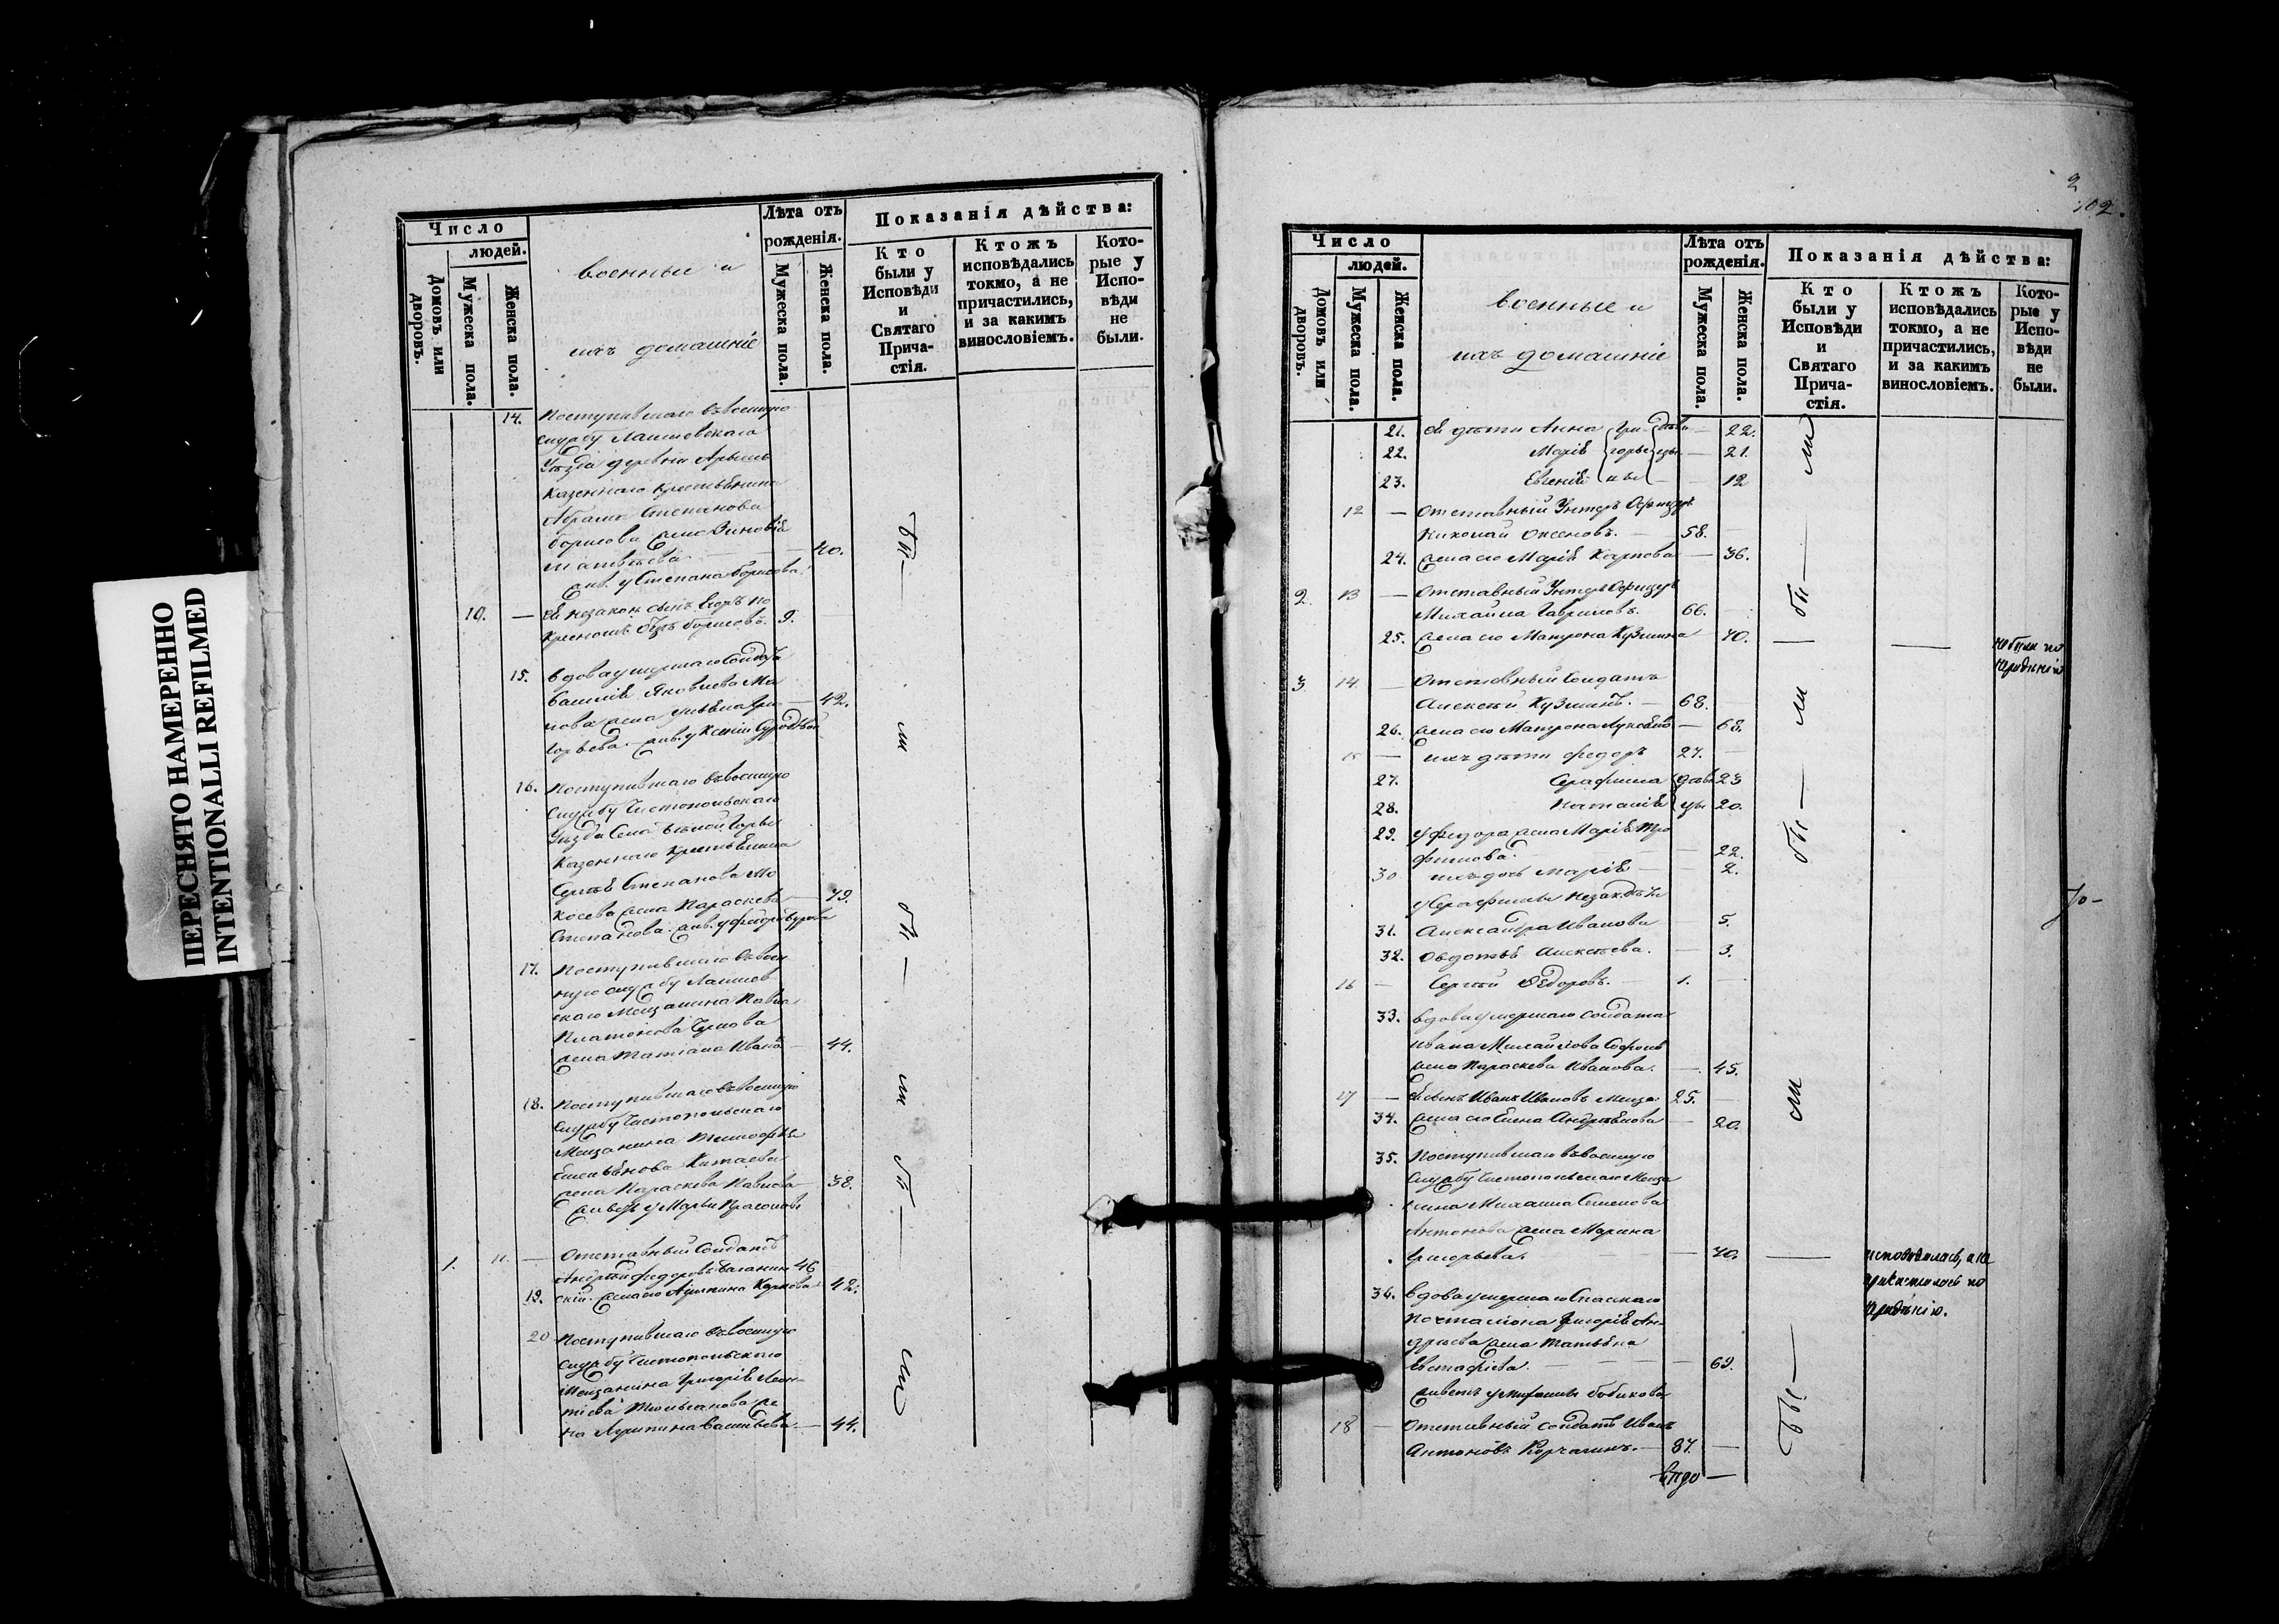 ПЕРЕСНЯТО НАМЕРЕННО
INTENTIONALLI REFILMED
Число
людей.
Домовъ или дворовъ.
Мужеска пола.
Женска пола.
военные и
ихъ домашніе
Лѣта отъ
рожденія.
Мужеска пола.
Женска пола.
Показанія дѣйства:
Кто
были у
Исповѣди
и
Святаго
Прича-
стія.
Ктожъ
исповѣдались
токмо, а не
причастились,
и за какимъ
винословіемъ.
Кото-
рые у
Испо-
вѣди
не
были.
14. Поступившаго въ военную
службу Лаишевскаго
Уѣзда деревни
Казеннаго Крестьянина
Абрама Степанова
Борисова жена Зиновія
Матвѣева 40.
жив. у Степана Борисова.
10. — Ея незакон. сынъ Егоръ по
Борисовъ. 9.
15. Вдова умершаго Солдата
Василія Яковлева
жена Ульяна Гри- 42.
горьева. жив. у Ксеніи
16. Поступившаго въ военную
службу Чистопольскаго
Уѣзда Села
Казеннаго Крестьянина
Сергѣя Степанова Мо
кѣева жена Параскева
Степанова. жив. у
17. Поступившаго въ воен
ную службу Лаишев
скаго Мещанина Павла
Платонова
жена Татіана 44.
18. Поступившаго въ военную
службу Чистопольскаго
Мещанина Тимофѣя
Емельянова Китаева
жена Параскева Павлова 38.
живетъ у Марьи
1. 11. — Отставный Солдатъ
Андрей Федоровъ 46
19. жена его Акулина Карпова 42.
20 Поступившаго въ военную
службу Чистопольскаго
Мещанина Григорія Леон-
тіева же
на Акулина Васильева — 44.
бы—
ли
бы—
ли
бы—
ли
2
102.
Число
людей.
Домовъ или дворовъ.
Мужеска пола.
Женска пола.
военные и
ихъ домашніе
Лѣта отъ
рожденія.
Мужеска пола.
Женска пола.
Показанія дѣйства:
Кто
были у
Исповѣди
и
Святаго
Прича-
стія.
Ктожъ
исповѣдались
токмо, а не
причастились,
и за какимъ
винословіемъ.
Кото-
рые у
Испо-
вѣди
не
были.
21. Ея дѣти Анна Гри- дѣви — 22.
22. Марія горье цы — 21.
23. Евгенія вы — 12
12 — Отставный Унтеръ Офицеръ
Николай Аксеновъ. — 58.
24. жена его Марія Карпова — 36.
2. 13 — Отставный Унтеръ Офицеръ
Михайла Гавриловъ. 66.
25. жена его Матрона Кузмина — 40. — — не была по
нерадѣнію
3. 14. — Отставный Солдатъ
Алексѣй Кузминъ. — 68.
26. жена его Матрона Лукьянова — 68.
15 — ихъ дѣти Федоръ 27. —
27. Серафима дѣви 23
28. Наталія цы 20.
29. У Федора жена Марія Тро
фимова. — 22.
30 ихъ дочь Марія — 2.
у Серафимы незак. дѣти
31. Александра Иванова 5.
32. Овдотья Алексѣева. — 3.
16 — Сергѣй Федоровъ. — 1. —
33. Вдова умершаго Солдата
Ивана Михайлова
жена Параскева Иванова. — 45.
17 — Ея сынъ Иванъ Ивановъ 25. —
34. жена его Елена Андреянова — 20.
35. Поступившаго въ военную
Службу Чистопольскаго Меща
нина Михаила Семенова
Антонова жена Марина
Григорьева. — 40. — исповѣдалась, а не
причастилась по
нерадѣнію.
36. Вдова умершаго Спасскаго
Почталіона Григорія Ан-
дреева жена Татьяна
Евстафіева. — 69.
живетъ у Бобикова
18 — Отставный солдатъ Иванъ
Антоновъ Корчагинъ. — 87. —
вдо —
ли
бы—
ли
бы—
ли
бы—